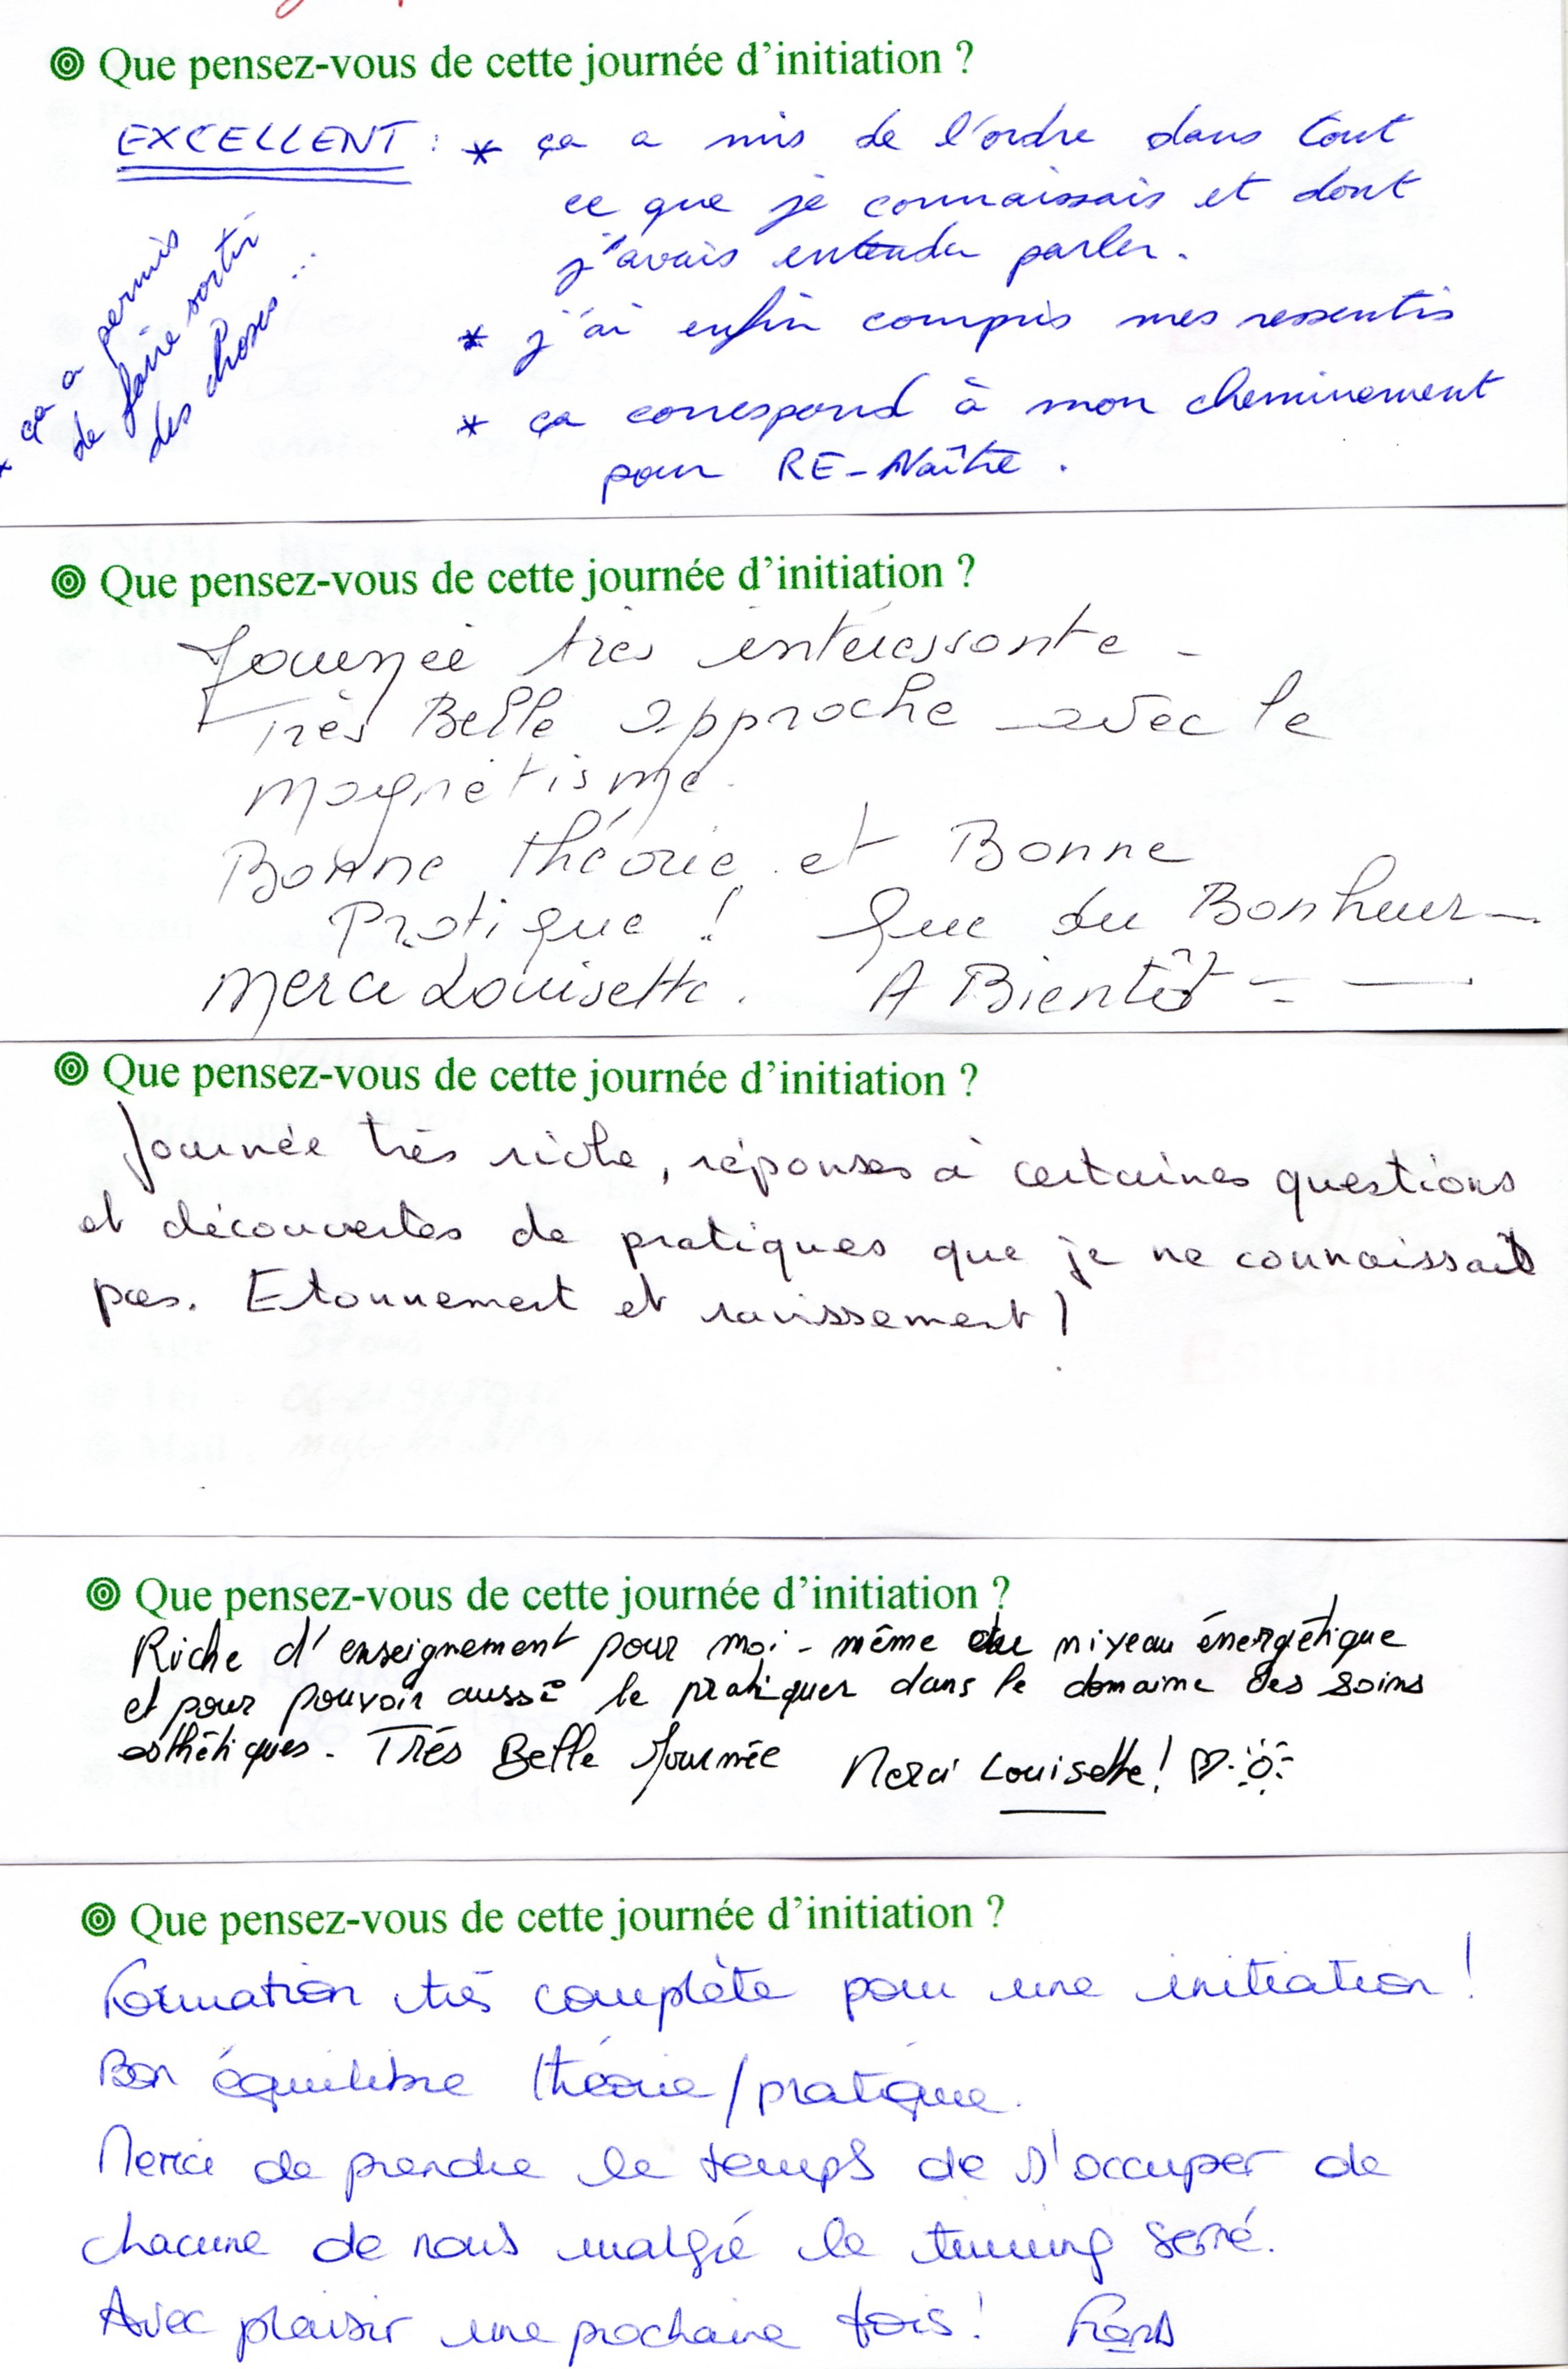 Que pensez-vous de cette journée d'initiation ?
EXCELLENT : * ça a mis de l'ordre dans tout
ce que je connaissais et dont
j'avais entendu parler.
* j'ai enfin compris mes ressentis
* ça correspond à mon cheminement
pour RE-Naître.
* ça a permis
de faire sortir
des choses...
Que pensez-vous de cette journée d'initiation ?
Journée très intéressante -
Très Belle approche avec le
magnétisme.
Bonne théorie et Bonne
Pratique ! Que du Bonheur -
Merci Louisette. A Bientôt - -
Que pensez-vous de cette journée d'initiation ?
Journée très riche, réponses à certaines questions
et découvertes de pratiques que je ne connaissais
pas. Etonnement et ravissement !
Que pensez-vous de cette journée d'initiation ?
Riche d'enseignement pour moi-même au niveau énergétique
et pour pouvoir aussi le pratiquer dans le domaine des soins
esthétiques. Très Belle Journée Merci Louisette ! ♡
Que pensez-vous de cette journée d'initiation ?
Formation très complète pour une initiation !
Bon équilibre théorie/pratique.
Merci de prendre le temps de s'occuper de
chacune de nous malgré le timing serré.
Avec plaisir une prochaine fois !